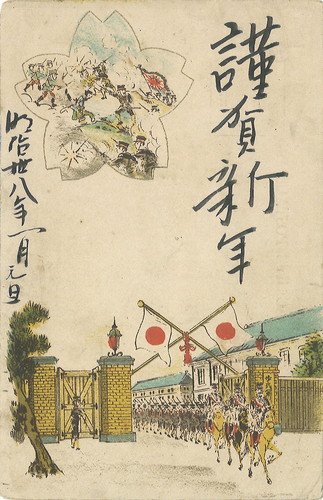 謹賀新年
明治丗八年一月元旦